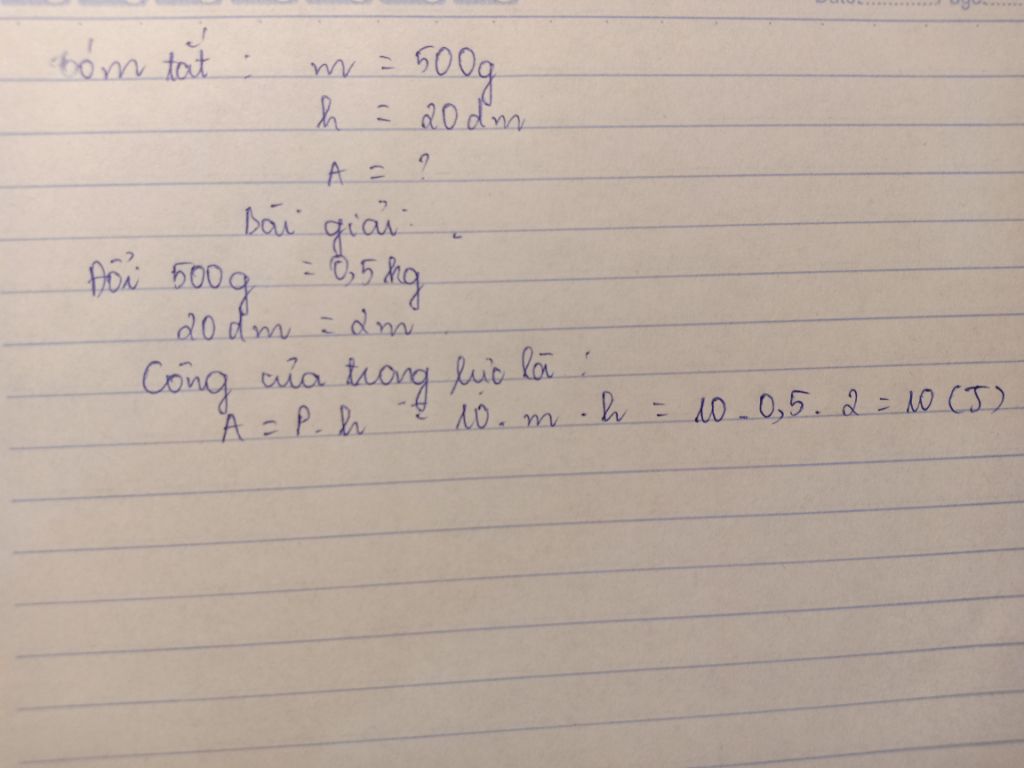 tóm tắt : m = 500g
h = 20dm
A = ?
Bài giải:
Đổi 500g = 0,5kg
20dm = 2m
Công của trọng lực là :
A = P.h = 10.m.h = 10.0,5.2=10 (J)